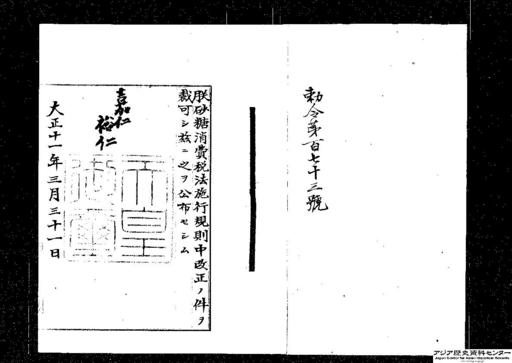 勅令第百七十三號
朕砂糖消費税法施行規則中改正ノ件ヲ
裁可シ茲ニ之ヲ公布セシム
嘉仁
裕仁
天皇御璽
大正十一年三月三十一日
アジア歴史資料センター
Japan Center for Asian Historical Records